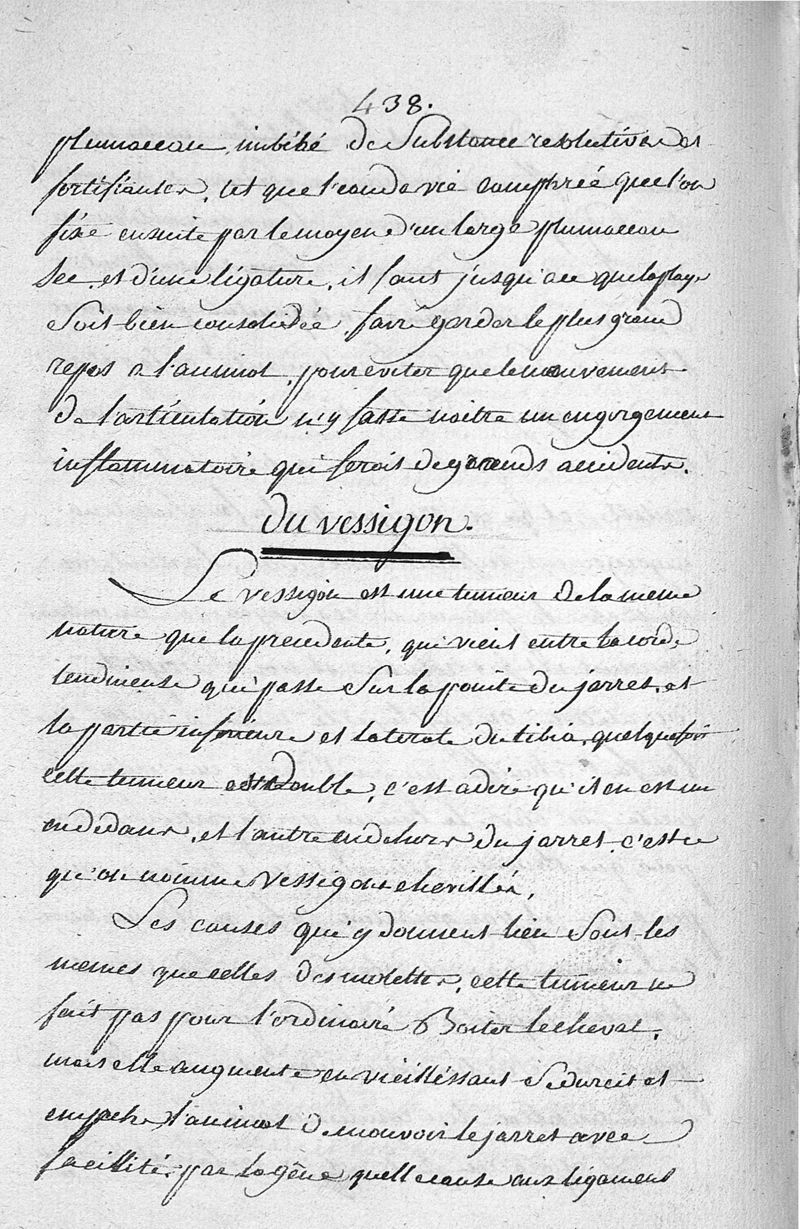 438.
plumaceau imbibé de Substance resolutives et
fortifiantes, tel que l'eau de vie camphrée que l'on
fixe ensuite par le moyen d'un large plumaceau
sec, et d'une ligature, il faut jusqu'a ce que la playe
Soit bien consolidée, faire garder le plus grand
repos a l'animal, pour eviter que le mouvement
de l'articulation n'y fasse naitre un engorgement
inflammatoire qui seroit de grands accidents.
du vessigon.
Le vessigon est une tumeur de la meme
nature que la precedente, qui vient entre la corde
tendineuse qui passe Sur la pointe du jarret, et
la partie inferieure et laterale du tibia, quelquefois
cette tumeur est Double, c'est a dire qu'il en est un
en dedans, et l'autre en dehors du jarret c'est ce
qu'on nomme Vessigon chevillés.
Les causes qui y donnent lieu Sont les
memes que celles des molettes, cette tumeur ne
fait pas pour l'ordinaire Boiter le cheval,
mais elle augmente en vieillissant Se durcit et
empeche l'animal de mouvoir le jarret avec
facilité, par la gêne quelle cause aux ligaments